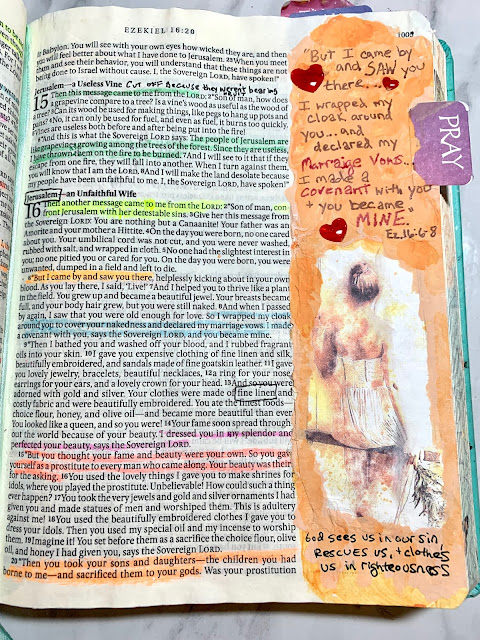 EZEKIEL 16:20
1005
it Babylon. You will see with your own eyes how wicked they are, and then
you will feel better about what I have done to Jerusalem. 23When you meet
them and see their behavior, you will understand that these things are not
being done to Israel without cause. I, the Sovereign LORD, have spoken!"
Jerusalem—a Useless Vine
Cut off Because they weren't bearing
15 Then this message came to me from the LORD: 2"Son of man, how does
a grapevine compare to a tree? Is a vine's wood as useful as the wood of
a tree? 3Can its wood be used for making things, like pegs to hang up pots and
pans? 4No, it can only be used for fuel, and even as fuel, it burns too quickly.
5Vines are useless both before and after being put into the fire!
6"And this is what the Sovereign LORD says: The people of Jerusalem are
like grapevines growing among the trees of the forest. Since they are useless,
I have thrown them on the fire to be burned. 7And I will see to it that if they
escape from one fire, they will fall into another. When I turn against them,
you will know that I am the LORD. 8And I will make the land desolate because
my people have been unfaithful to me. I, the Sovereign LORD, have spoken!"
Jerusalem—an Unfaithful Wife
16 Then another message came to me from the LORD: 2"Son of man, con-
front Jerusalem with her detestable sins. 3Give her this message from
the Sovereign LORD: You are nothing but a Canaanite! Your father was an
Amorite and your mother a Hittite. 4On the day you were born, no one cared
about you. Your umbilical cord was not cut, and you were never washed,
rubbed with salt, and wrapped in cloth. 5No one had the slightest interest in
you; no one pitied you or cared for you. On the day you were born, you were
unwanted, dumped in a field and left to die.
6"But I came by and saw you there, helplessly kicking about in your own
blood. As you lay there, I said, 'Live!' 7And I helped you to thrive like a plant
in the field. You grew up and became a beautiful jewel. Your breasts became
full, and your body hair grew, but you were still naked. 8And when I passed
by again, I saw that you were old enough for love. So I wrapped my cloak
around you to cover your nakedness and declared my marriage vows. I made
a covenant with you, says the Sovereign LORD, and you became mine.
9"Then I bathed you and washed off your blood, and I rubbed fragrant
oils into your skin. 10I gave you expensive clothing of fine linen and silk,
beautifully embroidered, and sandals made of fine goatskin leather. 11I gave
you lovely jewelry, bracelets, beautiful necklaces, 12a ring for your nose,
earrings for your ears, and a lovely crown for your head. 13And so you were
adorned with gold and silver. Your clothes were made of fine linen and
costly fabric and were beautifully embroidered. You ate the finest foods—
choice flour, honey, and olive oil—and became more beautiful than ever.
You looked like a queen, and so you were! 14Your fame soon spread through-
out the world because of your beauty. I dressed you in my splendor and
perfected your beauty, says the Sovereign LORD.
15"But you thought your fame and beauty were your own. So you gave
yourself as a prostitute to every man who came along. Your beauty was theirs
for the asking. 16You used the lovely things I gave you to make shrines for
idols, where you played the prostitute. Unbelievable! How could such a thing
ever happen? 17You took the very jewels and gold and silver ornaments I had
given you and made statues of men and worshiped them. This is adultery
against me! 18You used the beautifully embroidered clothes I gave you to
dress your idols. Then you used my special oil and my incense to worship
them. 19Imagine it! You set before them as a sacrifice the choice flour, olive
oil, and honey I had given you, says the Sovereign LORD.
20"Then you took your sons and daughters—the children you had
borne to me—and sacrificed them to your gods. Was your prostitution
"But I came by
and SAW you
there....
I wrapped my
cloak around
you...and
declared my
Marraige Vows...
I made a
COVENANT with you
+ you became
MINE."
Ez. 16:6-8
PRAY
God sees us in our sin
RESCUES US, + clothes
us in righteousness